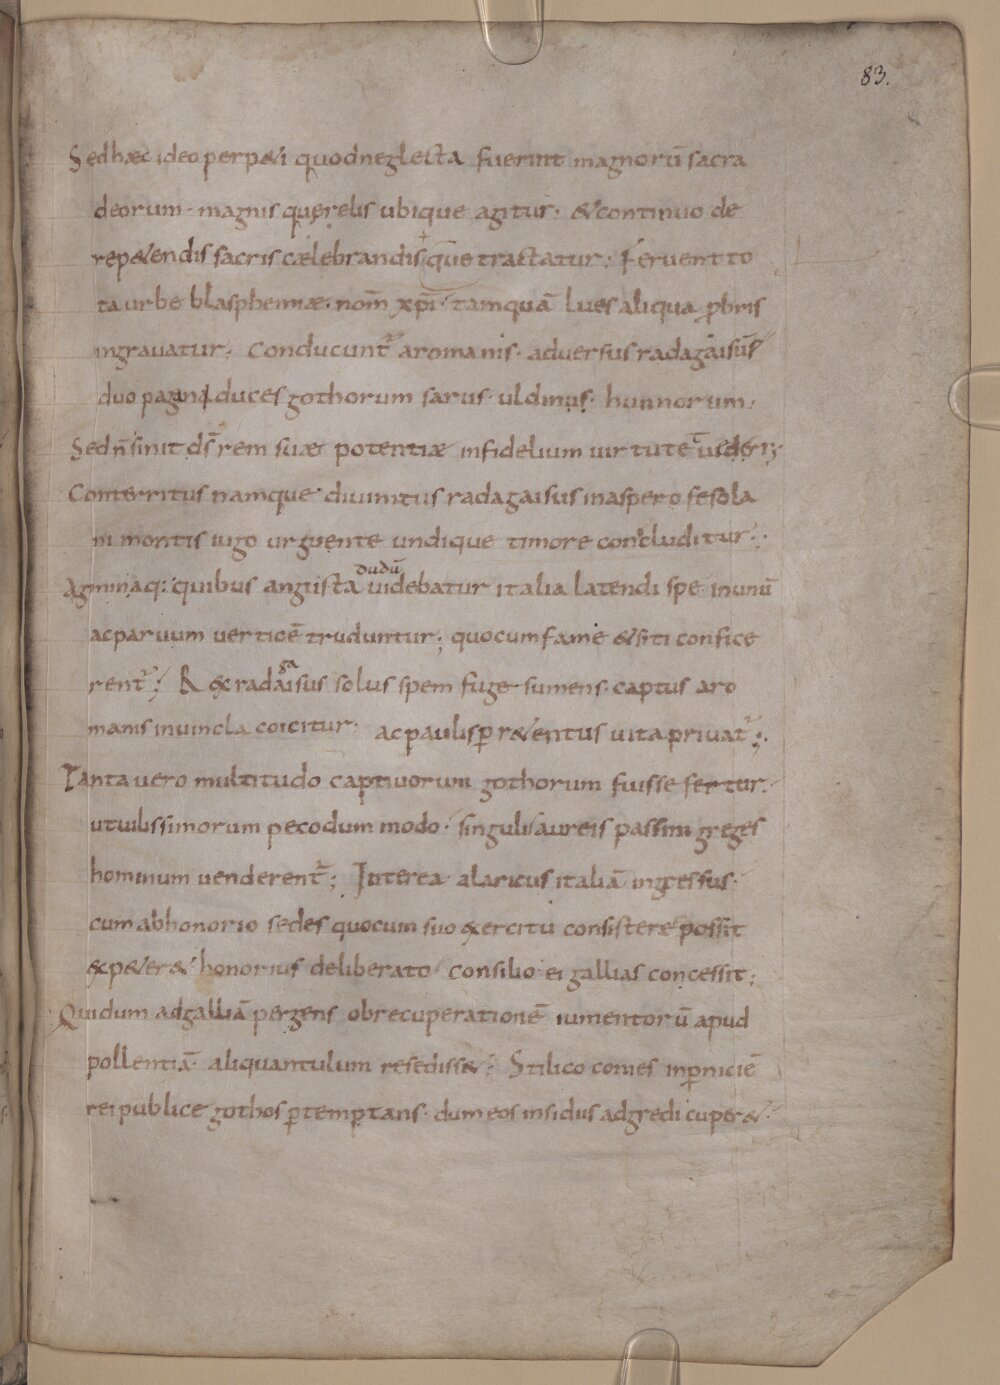 83.
Sed hæc ideo perp&i quod neglecta fuerint magnorū sacra
deorum· magnis querelis ubique agitur· & continuo de
rep&endis sacris cælebrandis q̄ue tractatur; Fervent to
ta urbe blasphemiæ· nom̄ xp̄i· tamquā lues aliqua ꝓbris
ingravatur; Conducunt᷑ a romanis· adversus radagaisū
duo pagani duces gothorum sarus· uldinus· hunnorum;
Sed n̄ sinit d̄s rem suæ potentiæ infidelium virtutē viderī;
Conterritus namque divinitus radagaisus in aspero fesola
ni montis iugo urguente undique timore concluditur;
Agminaq: quibus angusta dudū videbatur italia latendi spe· in unū
ac parvum verticē truduntur; quo cum fame & siti confice
rent᷑; Rex radagaisus solus spem fuge sumens· captus a ro
manis in vincla coicitur· ac paulisꝑ r&entus vita privat᷑;
Tanta vero multitudo captivorum gothorum fuisse fertur·
ut vilissimorum pecodum modo· singulis aureis passim greges
hominum venderent᷑; Interea alaricus italiā ingressus·
cum ab honorio sedes quo cum suo exercitu consistere possit
exp&er&· honorius deliberato consilio ei gallias concessit;
Qui dum ad galliā pergens ob recuperationē iumentorū apud
pollentiā· aliquantulum resediss&; Stilico comes in ꝑniciē
rei publice gothos ꝑtemptans· dum eos insidiis adgredi cuper&·